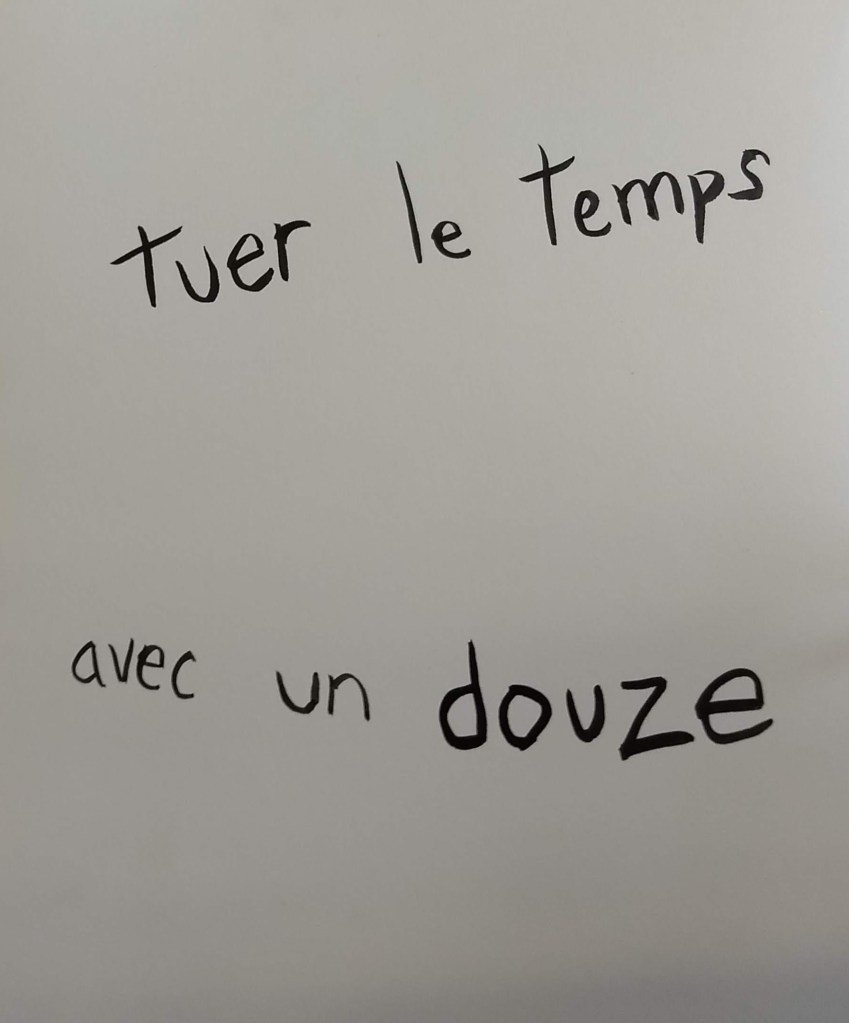 tuer le temps
avec un douze